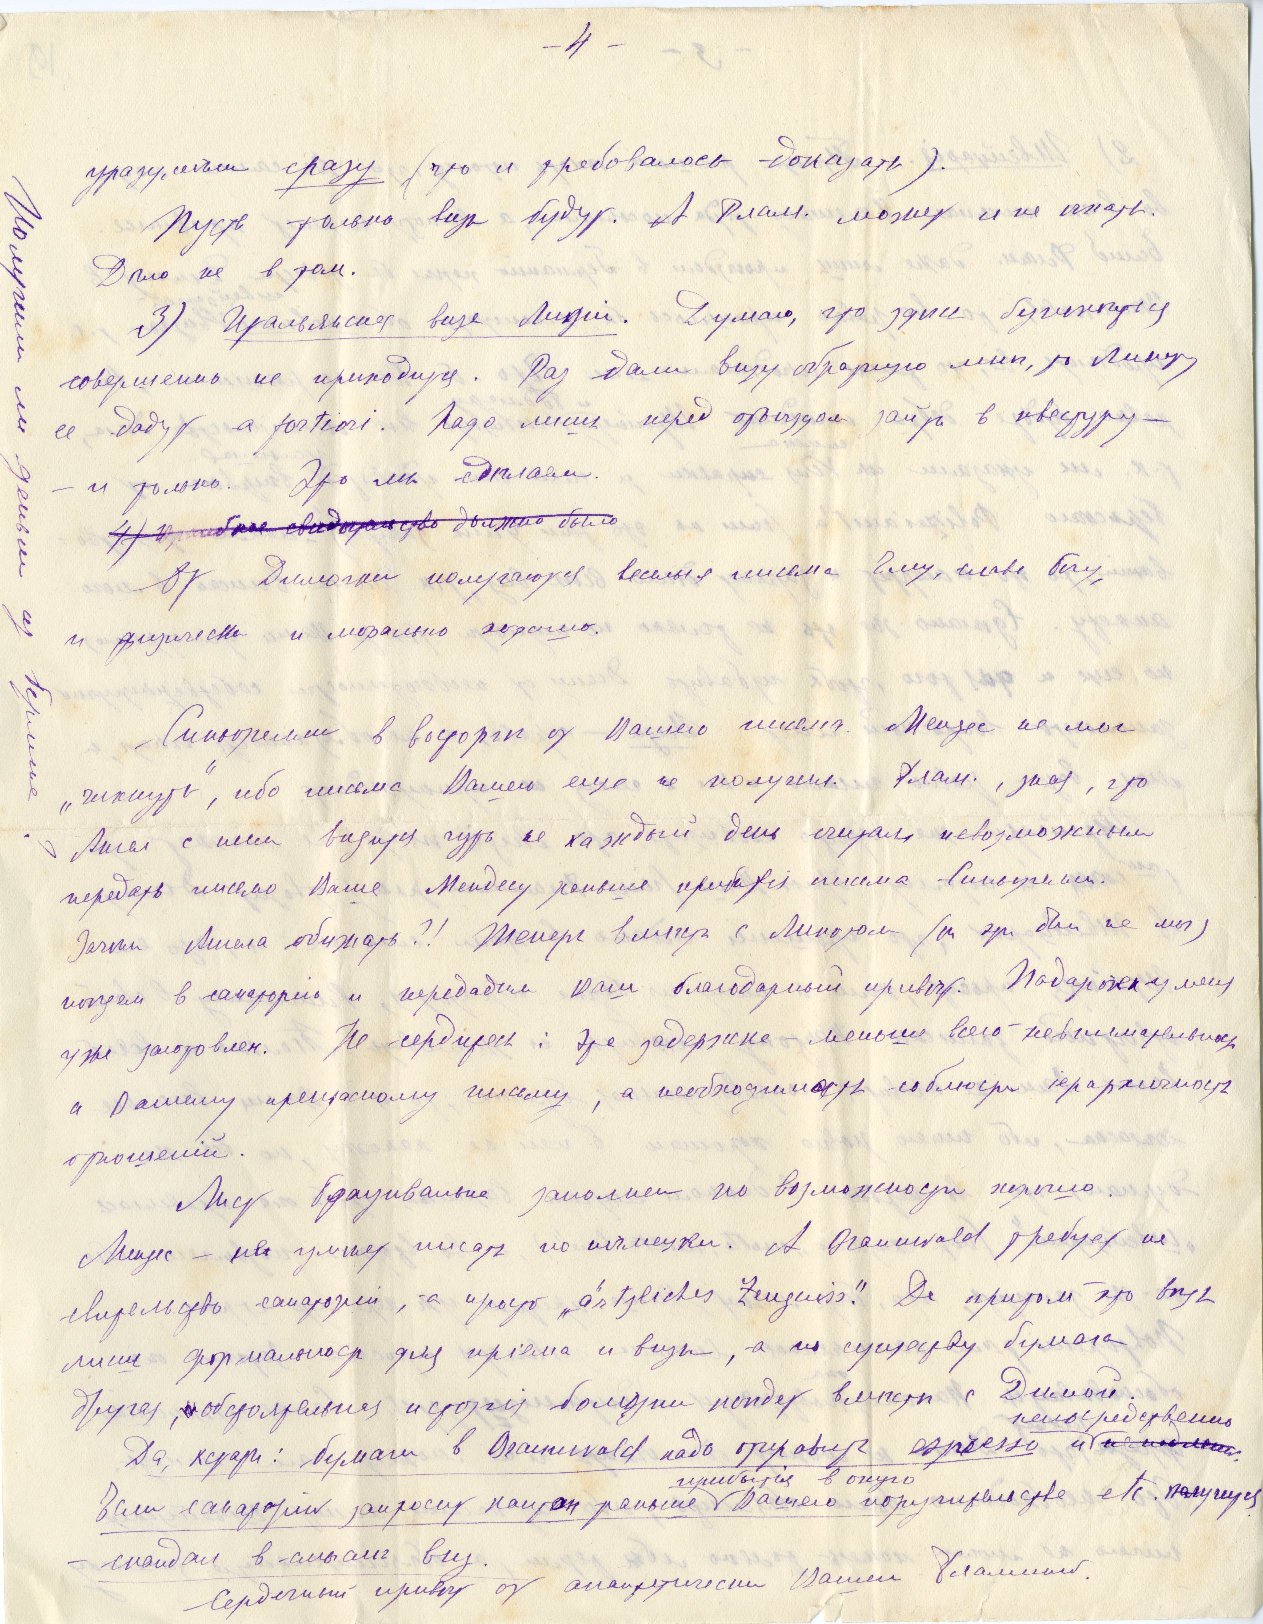 - 4 -
уразумѣли сразу (что и требовалось доказать).
Пусть только визы будут. А Флам. может и не ѣхать.
Дѣло не в том.
3) Итальянская виза Лидіи. Думаю, что здѣсь
совершенно не приходится. Раз дали визу обратную мнѣ, то
ее дадут a fortiori. Надо лишь перед отъѣздом зайти в квестуру —
— и только. Это мы сдѣлаем.
4) свидѣтельство должно было
От Димочки получаются веселыя письма. Ему, слава Богу,
и физически и морально хорошо.
Синьорелли в восторгѣ от Вашего письма. Мендес не мог
„пикнуть", ибо письма Вашего еще не получил. Флам., зная, что
с ним видится чуть не каждый день считал невозможным
передать письмо Ваше Мендесу раньше прибытія письма Синьорелли.
Зачѣм обижать?! Теперь вмѣстѣ с
поѣдем в санаторію и передадим Ваш благодарный привѣт. Подарочек у меня
уже заготовлен. Не сердитесь: эта задержка — меньше всего невнимательность
к Вашему прекрасному письму, а необходимость соблюсти іерархичность
отношеній.
Лист Браунвальда заполнен по возможности хорошо.
Мендес — не умѣет писать по нѣмецки. А Braunwald требует не
санаторіи, а просто „ärtzliches Zeugniss". Да притом это вѣдь
лишь формальность для пріема и визы, а по существу бумага
другая, обстоятельная исторія болѣзни поѣдет вмѣстѣ с Димой.
Да, кстати: бумаги в Braunwald надо отправить espresso и непосредственно
Если санаторія запросит кантон раньше прибытія в оную Вашего поручительства etc. получится
— скандал в смыслѣ виз.
Сердечный привѣт от Вашей Фламинги.
Получили ли деньги из Берлина?